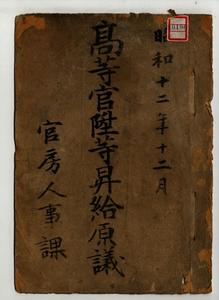 昭和十二年十二月
高等官陞等昇給原議
官房人事課